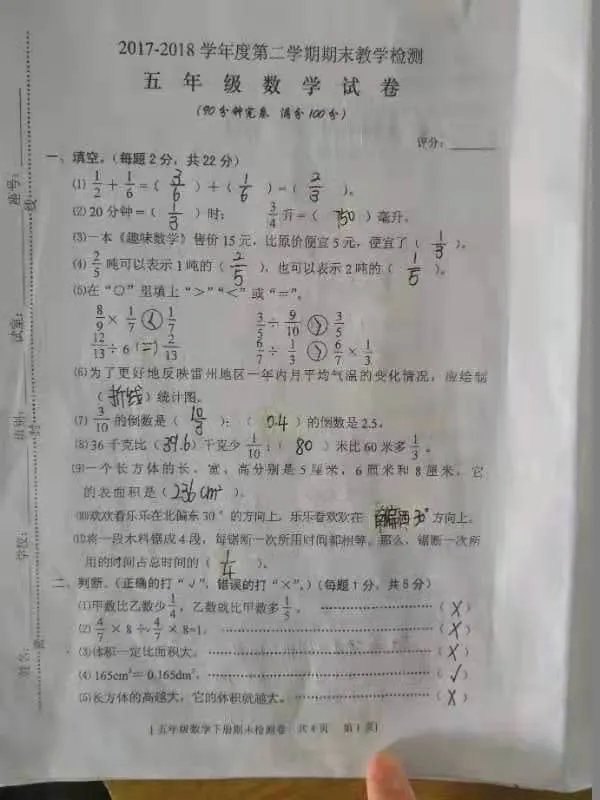 2017-2018 学年度第二学期期末教学检测
五 年 级 数 学 试 卷
(90分钟完卷 满分100分)
评分：
一、填空。(每题 2 分，共 22 分)
(1) 1/2 + 1/6 =( 3/6 )+( 1/6 )=( 2/3 )。
(2) 20 分钟=( 1/3 )时； 3/4 升=( 750 )毫升。
(3)一本《趣味数学》售价 15 元，比原价便宜 5 元，便宜了( 1/3 )。
(4) 2/5 吨可以表示 1 吨的( 2/5 )，也可以表示 2 吨的( 1/5 )。
(5)在“○”里填上“>”“<”或“=”。
8/9 × 1/7 < 1/7 3/5 ÷ 9/10 > 3/5
12/13 ÷ 6 = 2/13 6/7 ÷ 1/3 > 6/7 × 1/3
(6)为了更好地反映雷州地区一年内月平均气温的变化情况，应绘制
(折线)统计图。
(7) 3/10 的倒数是( 10/3 )；( 0.4 )的倒数是 2.5。
(8)36 千克比(39.6)千克少 1/10；( 80 )米比 60 米多 1/3。
(9)一个长方体的长、宽、高分别是 5 厘米，6 厘米和 8 厘米，它
的表面积是(236cm²)。
⑽欢欢看乐乐在北偏东 30°的方向上，乐乐看欢欢在 南偏西30° 方向上。
⑾将一段木料锯成 4 段，每锯断一次所用时间都相等。那么，锯断一次所
用的时间占总时间的( 1/4 )。
二、判断。(正确的打“√”，错误的打“×”。)(每题 1 分，共 5 分)
(1)甲数比乙数少 1/4，乙数就比甲数多 1/5。 (×)
(2) 4/7 × 8 ÷ 4/7 × 8=1。 (×)
(3)体积一定比面积大。 (×)
(4) 165cm³= 0.165dm³。 (√)
(5)长方体的高越大，它的体积就越大。 (×)
[五年级数学下册期末检测卷 共 4 页 第 1 页]
座号：
试室：
班别：
学校：
姓名：
线
封
密